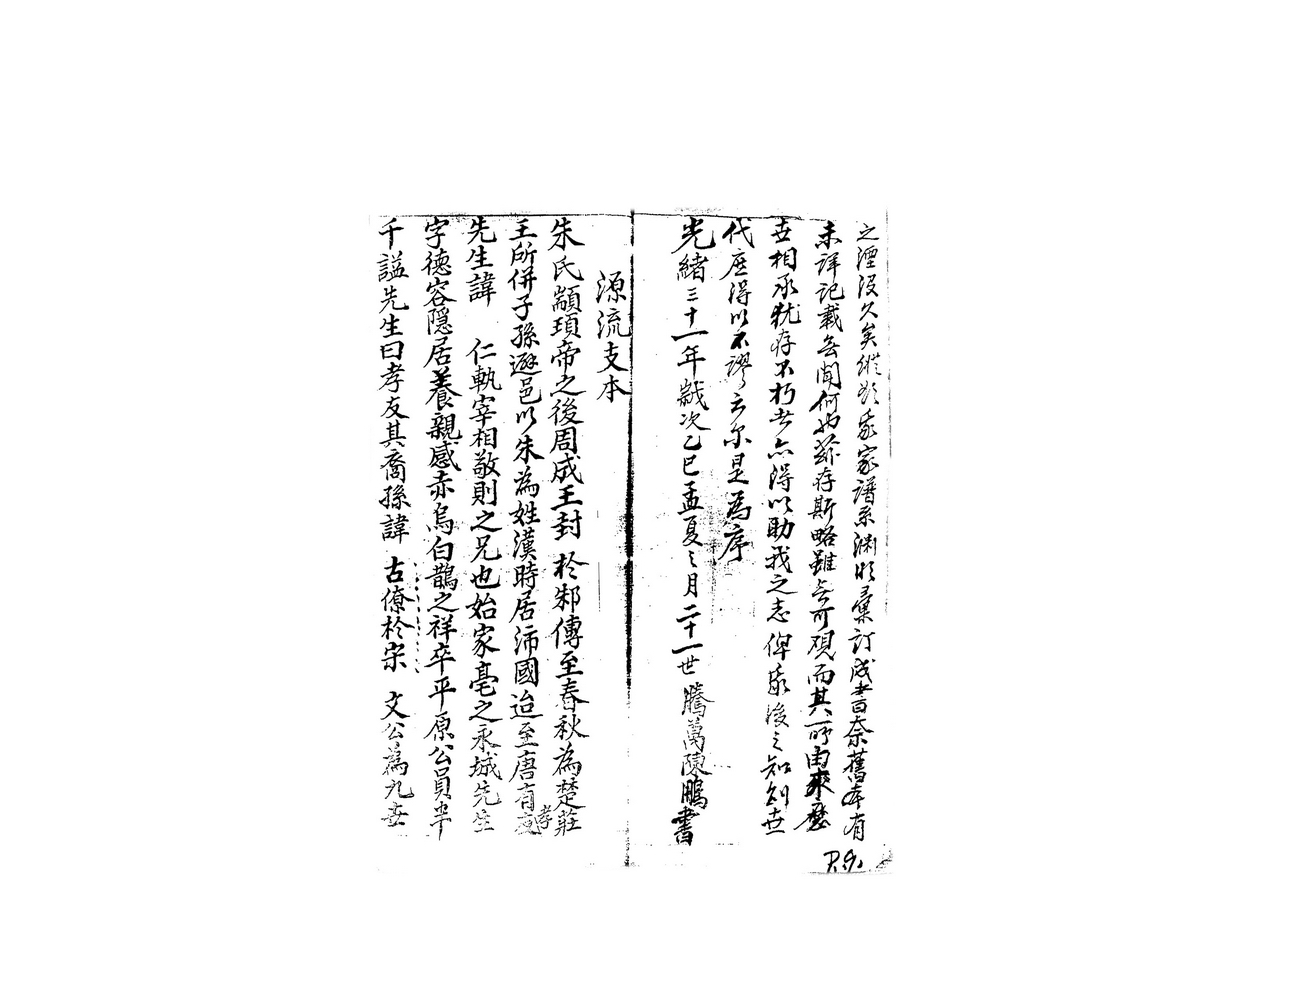 之湮没久矣縱欲家譜系淵明彙訂成書奈舊本有
未詳記載無聞何也茲存斯略雖無可观而其所由來歷
世相承犹存不朽者亦得以助我之志俾後之知幻世
代庶得以不謬云尔是為序
光緒三十一年歲次乙巳孟夏之月二十一世騰萬陳鵬書
源流支本
朱氏顓頊帝之後周成王封於邾傳至春秋為楚莊
王所併子孫避邑以朱為姓漢時居沛國迨至唐有孝友
先生諱 仁軌宰相敬則之兄也始家亳之永城先生
字德容隱居養親感赤烏白鵲之祥卒平原公員半
千謚先生曰孝友其裔孫諱 古僚於宋 文公為九世
P.9.